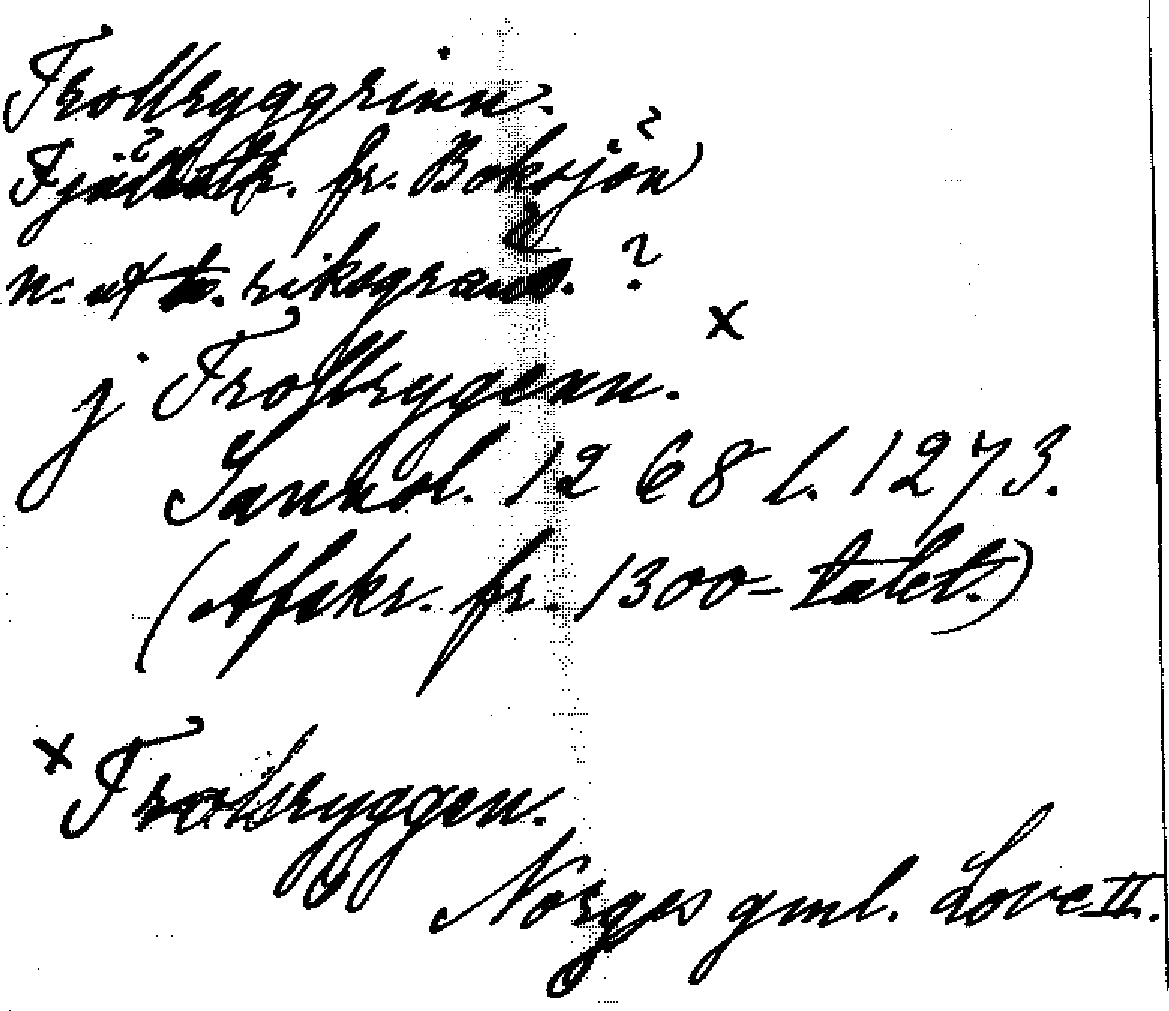 Trollryggrinn.
Fjällstk. fr. Boksjön ?
n. ut t. riksgräns. ?
j Trollrygenn. x
Sannol. 1268 l. 1273.
(Afskr. fr. 1300-talet.)
x Trollryggen.
Norges gml. Love II.